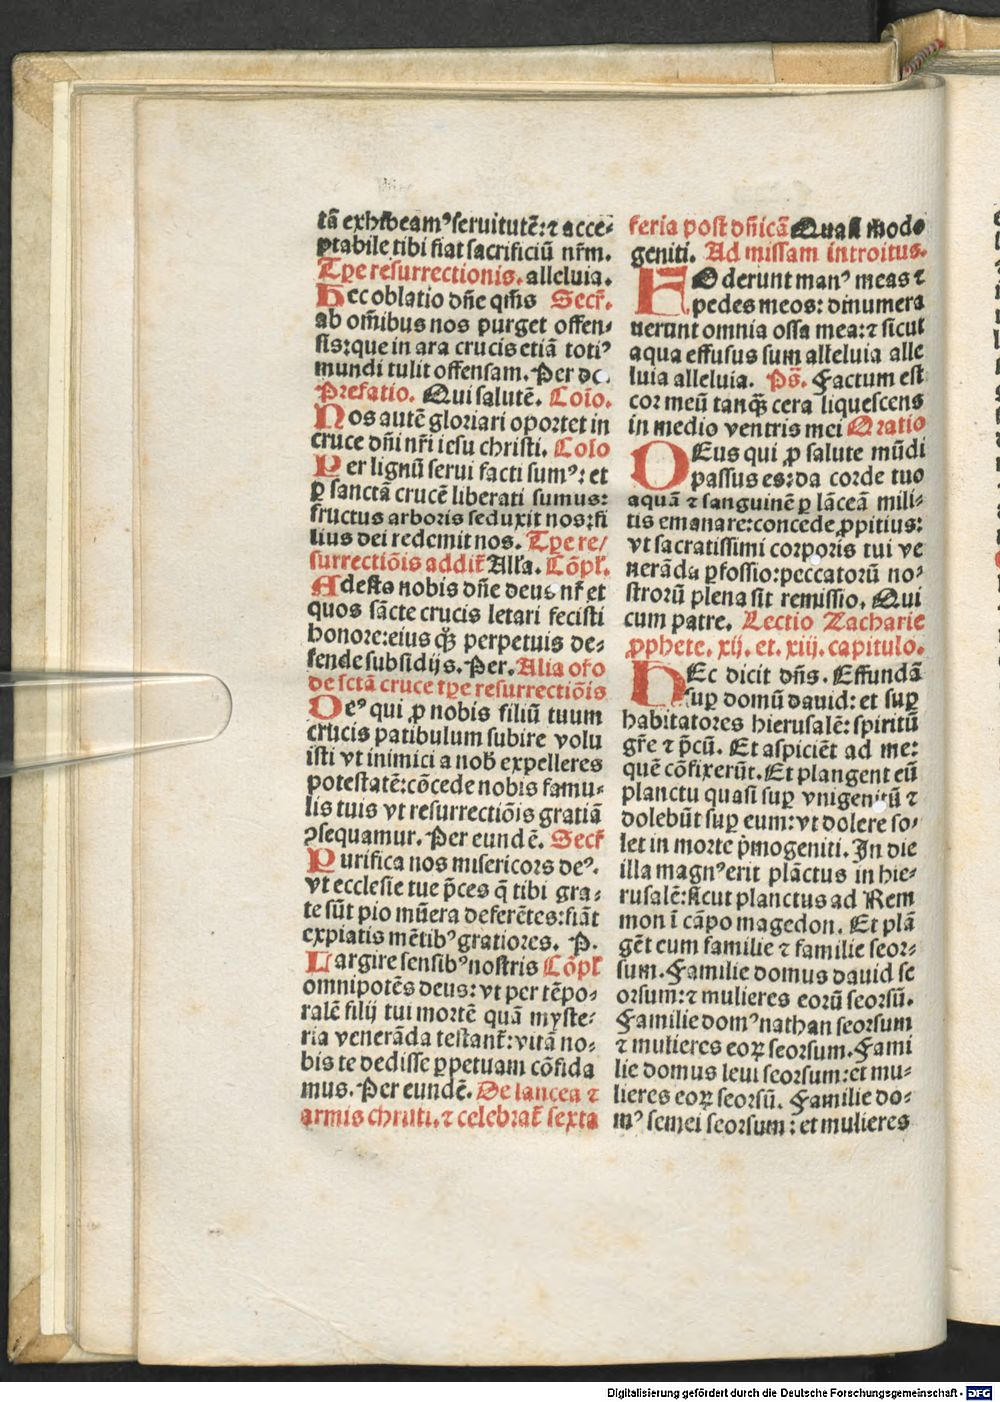 tā exhibeamꝰ seruitutē: ⁊ acce⸗
ptabile tibi fiat sacrificiū nr̄m.
Tp̄e resurrectionis. alleluia.
Hec oblatio dn̄e qm̄s Secr̄.
ab om̄ibus nos purget offen⸗
sis: que in ara crucis etiā totiꝰ
mundi tulit offensam. Per do.
Prefatio. Qui salutē. Co̅io.
Nos autē gloriari oportet in
cruce dn̄i nr̄i iesu christi. Colo
Per lignū serui facti sumꝰ: et
ꝑ sanctā crucē liberati sumus:
fructus arboris seduxit nos: fi
lius dei redemit nos. Tp̄e re/
surrectiōis addit̄ Alla. Cōpl̄.
Adesto nobis dn̄e deus nr̄ et
quos sācte crucis letari fecisti
honore: eius qꝫ perpetuis de⸗
fende subsidijs. Per. Alia oro
de sctā cruce tp̄e resurrectiōis
Deꝰ qui ꝓ nobis filiū tuum
crucis patibulum subire volu
isti vt inimici a nob̄ expelleres
potestatē: cōcede nobis famu⸗
lis tuis vt resurrectiōis gratiā
ꝯsequamur. Per eundē. Secr̄
Purifica nos misericors deꝰ.
vt ecclesie tue p̄ces q̄ tibi gra⸗
te sūt pio mūera deferētes: fiāt
expiatis mētibꝰ gratiores. P.
Largire sensibꝰ nostris Cōpl̄
omnipotēs deus: vt per tēpo⸗
ralē filij tui mortē quā myste⸗
ria venerāda testant̄: vitā no⸗
bis te dedisse ꝑpetuam cōfida
mus. Per eundē. De lancea ⁊
armis christi. ⁊ celebrat̄ sexta
feria post dn̄icā Quasi modo
geniti. Ad missam introitus.
FOderunt manꝰ meas ⁊
pedes meos: dinumera
uerunt omnia ossa mea: ⁊ sicut
aqua effusus sum alleluia alle
luia alleluia. Ps̄. Factum est
cor meū tanqꝫ cera liquescens
in medio ventris mei Oratio
DEus qui ꝓ salute mūdi
passus es: da corde tuo
aquā ⁊ sanguinē ꝑ lāceā mili⸗
tis emanare: concede ꝓpitius:
vt sacratissimi corporis tui ve
nerāda ꝑfossio: peccatorū no⸗
strorū plena sit remissio. Qui
cum patre. Lectio Zacharie
ꝓphete. xij. et. xiij. capitulo.
HEc dicit dn̄s. Effundā
suꝑ domū dauid: et suꝑ
habitatores hierusalē: spiritū
gr̄e ⁊ p̄cū. Et aspiciēt ad me:
quē cōfixerūt. Et plangent eū
planctu quasi suꝑ vnigenitū ⁊
dolebūt suꝑ eum: vt dolere so⸗
let in morte p̄mogeniti. In die
illa magnꝰ erit plāctus in hie⸗
rusalē: sicut planctus ad Rem
mon ī cāpo magedon. Et plā
gēt eum familie ⁊ familie seor⸗
sum. Familie domus dauid se
orsum: ⁊ mulieres eorū seorsū.
Familie domꝰ nathan seorsum
⁊ mulieres eoꝝ seorsum. Fami
lie domus leui seorsum: et mu⸗
lieres eoꝝ seorsū. Familie do⸗
mꝰ semei seorsum: et mulieres
Digitalisierung gefördert durch die Deutsche Forschungsgemeinschaft - DFG